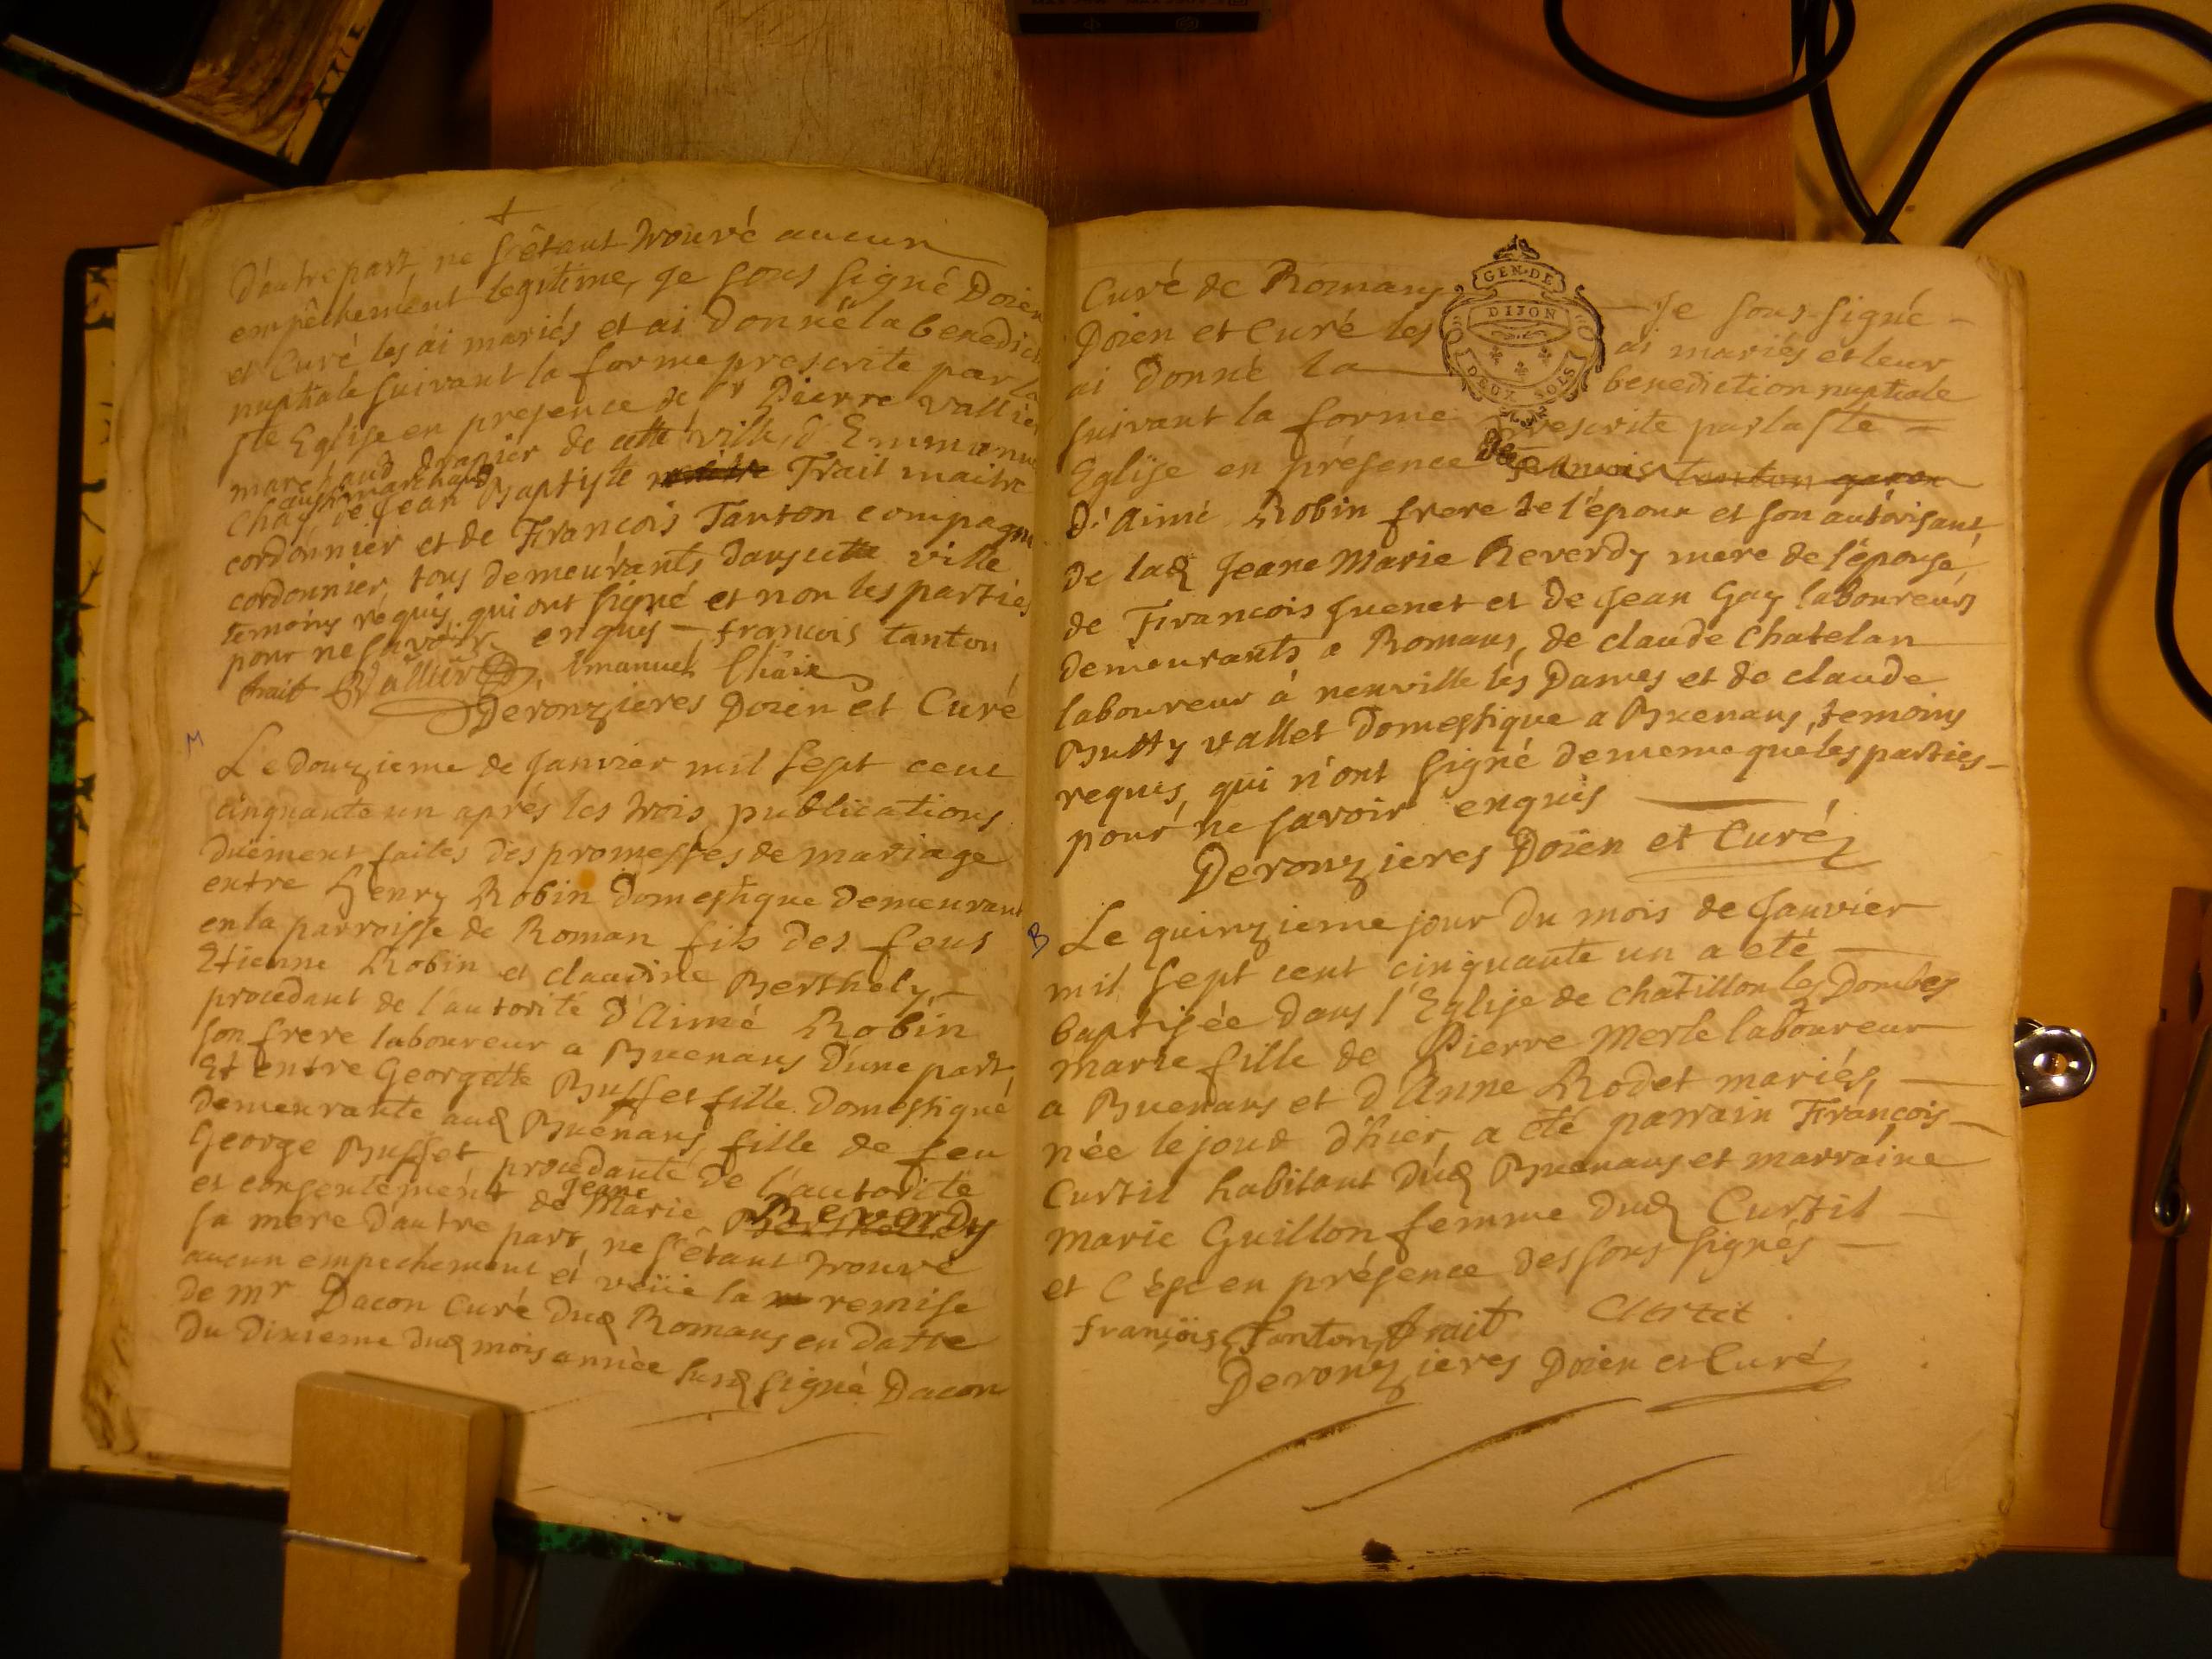 d'autre part, ne s'étant trouvé aucun
empêchement legitime, je sous signé Doien
et Curé les ai mariés et ai donné la benedic
nuptiale suivant la forme prescrite par la
ste Eglise en presence de sr Pierre Vallier
marchand drapier de cette ville, d'Emmanu
aussi marchand
de Jean Baptiste Trait maitre
cordonnier et de François Tanton compagn
cordonnier, tous demeurants dans cette ville
temoins requis, qui ont signé et non les parties
pour ne savoir enquis — françois tanton
trait Vallier Emanuel Chaix
Deronzieres Doien et Curé
M
Le douzieme de janvier mil sept cent
cinquante un aprés les trois publications
duëment faites des promesses de mariage
entre Henry Robin domestique demeurant
en la parroisse de Roman fils des feus
Etienne Robin et claudine Berthely,
procedant de l'autorité d'Aimé Robin
son frere laboureur a Buenans d'une part,
Et entre Georgette Buffet fille domestique
demeurante aud Buenans, fille de feu
George Buffet, procedante de l'autorité
et consentement de Jeane Marie Reverdy
sa mere d'autre part, ne s'étant trouvé
aucun empechement et veüe la remise
de mr Dacon Curé dud Romans en datte
du dixieme dud mois année susd signé Dacon
Curé de Romans Je sous signé
GEN. DE
DIJON
DEUX SOLS
Doien et Curé les ai mariés et leur
ai donné la benediction nuptiale
suivant la forme prescrite par la ste
Eglise en présence de francois tanton
d'Aimé Robin frere de l'époux et son autorisant,
de lad Jeane Marie Reverdy mere de l'épouse,
de Francois Guenet et de Jean Gay laboureurs
demeurants a Romans, de claude Chatelan
laboureur à neuville les Dames et de claude
Butty vallet domestique a Buenans, temoins
requis, qui n'ont signé de meme que les parties
pour ne savoir enquis
Deronzieres Doien et Curé
B
Le quinzieme jour du mois de janvier
mil sept cent cinquante un a eté
baptisée dans l'Eglise de chatillon les Dombes
marie fille de Pierre Merle laboureur
a Buenans et d'Anne Rodet mariés,
née le jour d'hier, a eté parrain François
Curtil habitant dud Buenans et marraine
marie Guillon femme dud Curtil
et c'ése en présence des sous signés
françois tanton trait Curtil
Deronzieres Doien et Curé